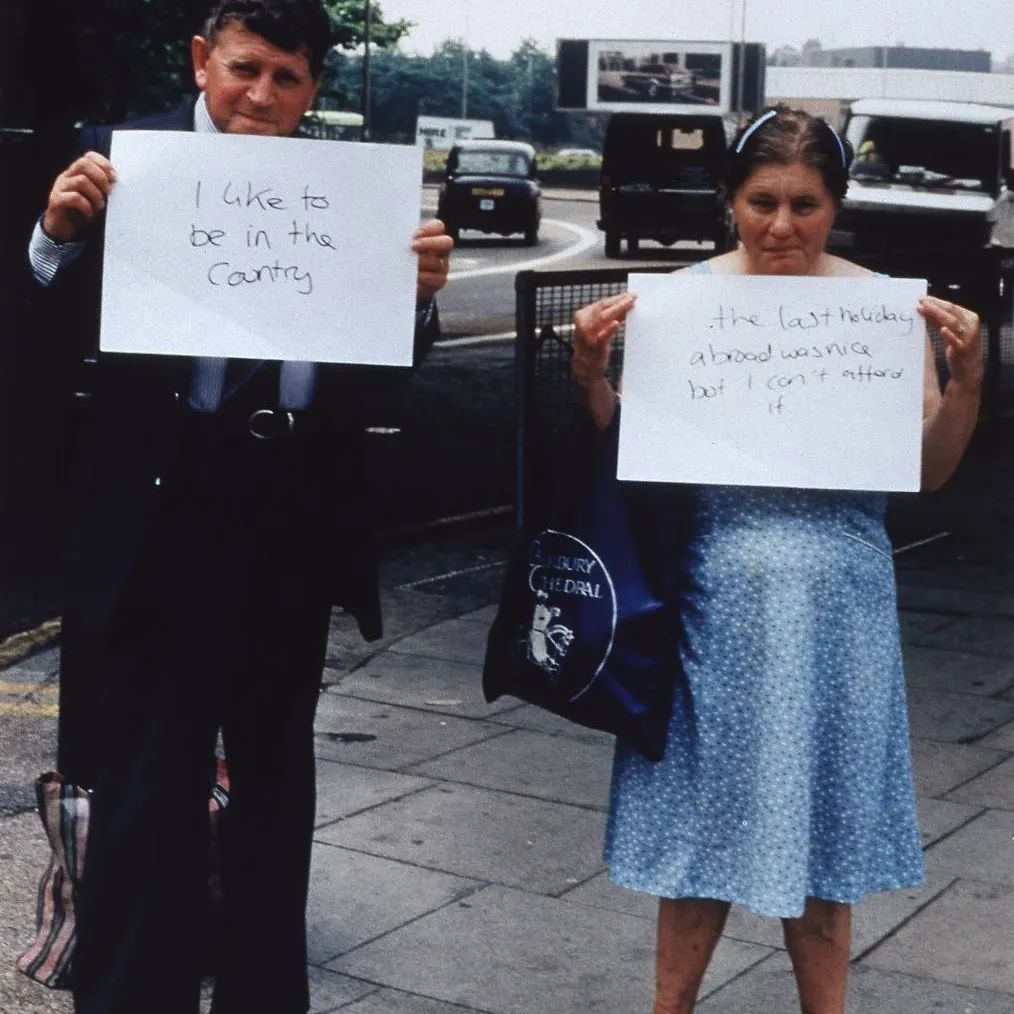 I like to
be in the
Country
the last holiday
abroad was nice
but I can't afford
it
HIRE
CATHEDRAL